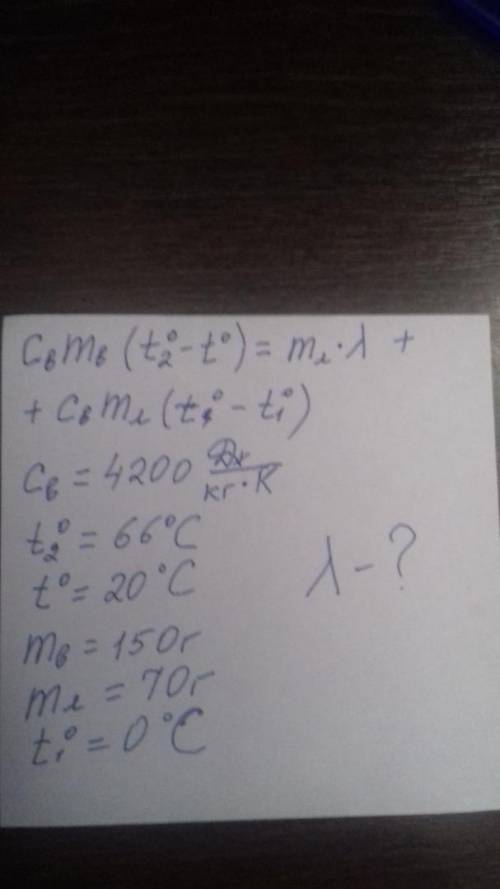 cвmв (t₂° - t°) = mл · λ +
+ cвmл (t° - t₁°)
cв = 4200 Дж/кг·К
t₂° = 66°C
t° = 20°C
λ - ?
mв = 150г
mл = 70г
t₁° = 0°C